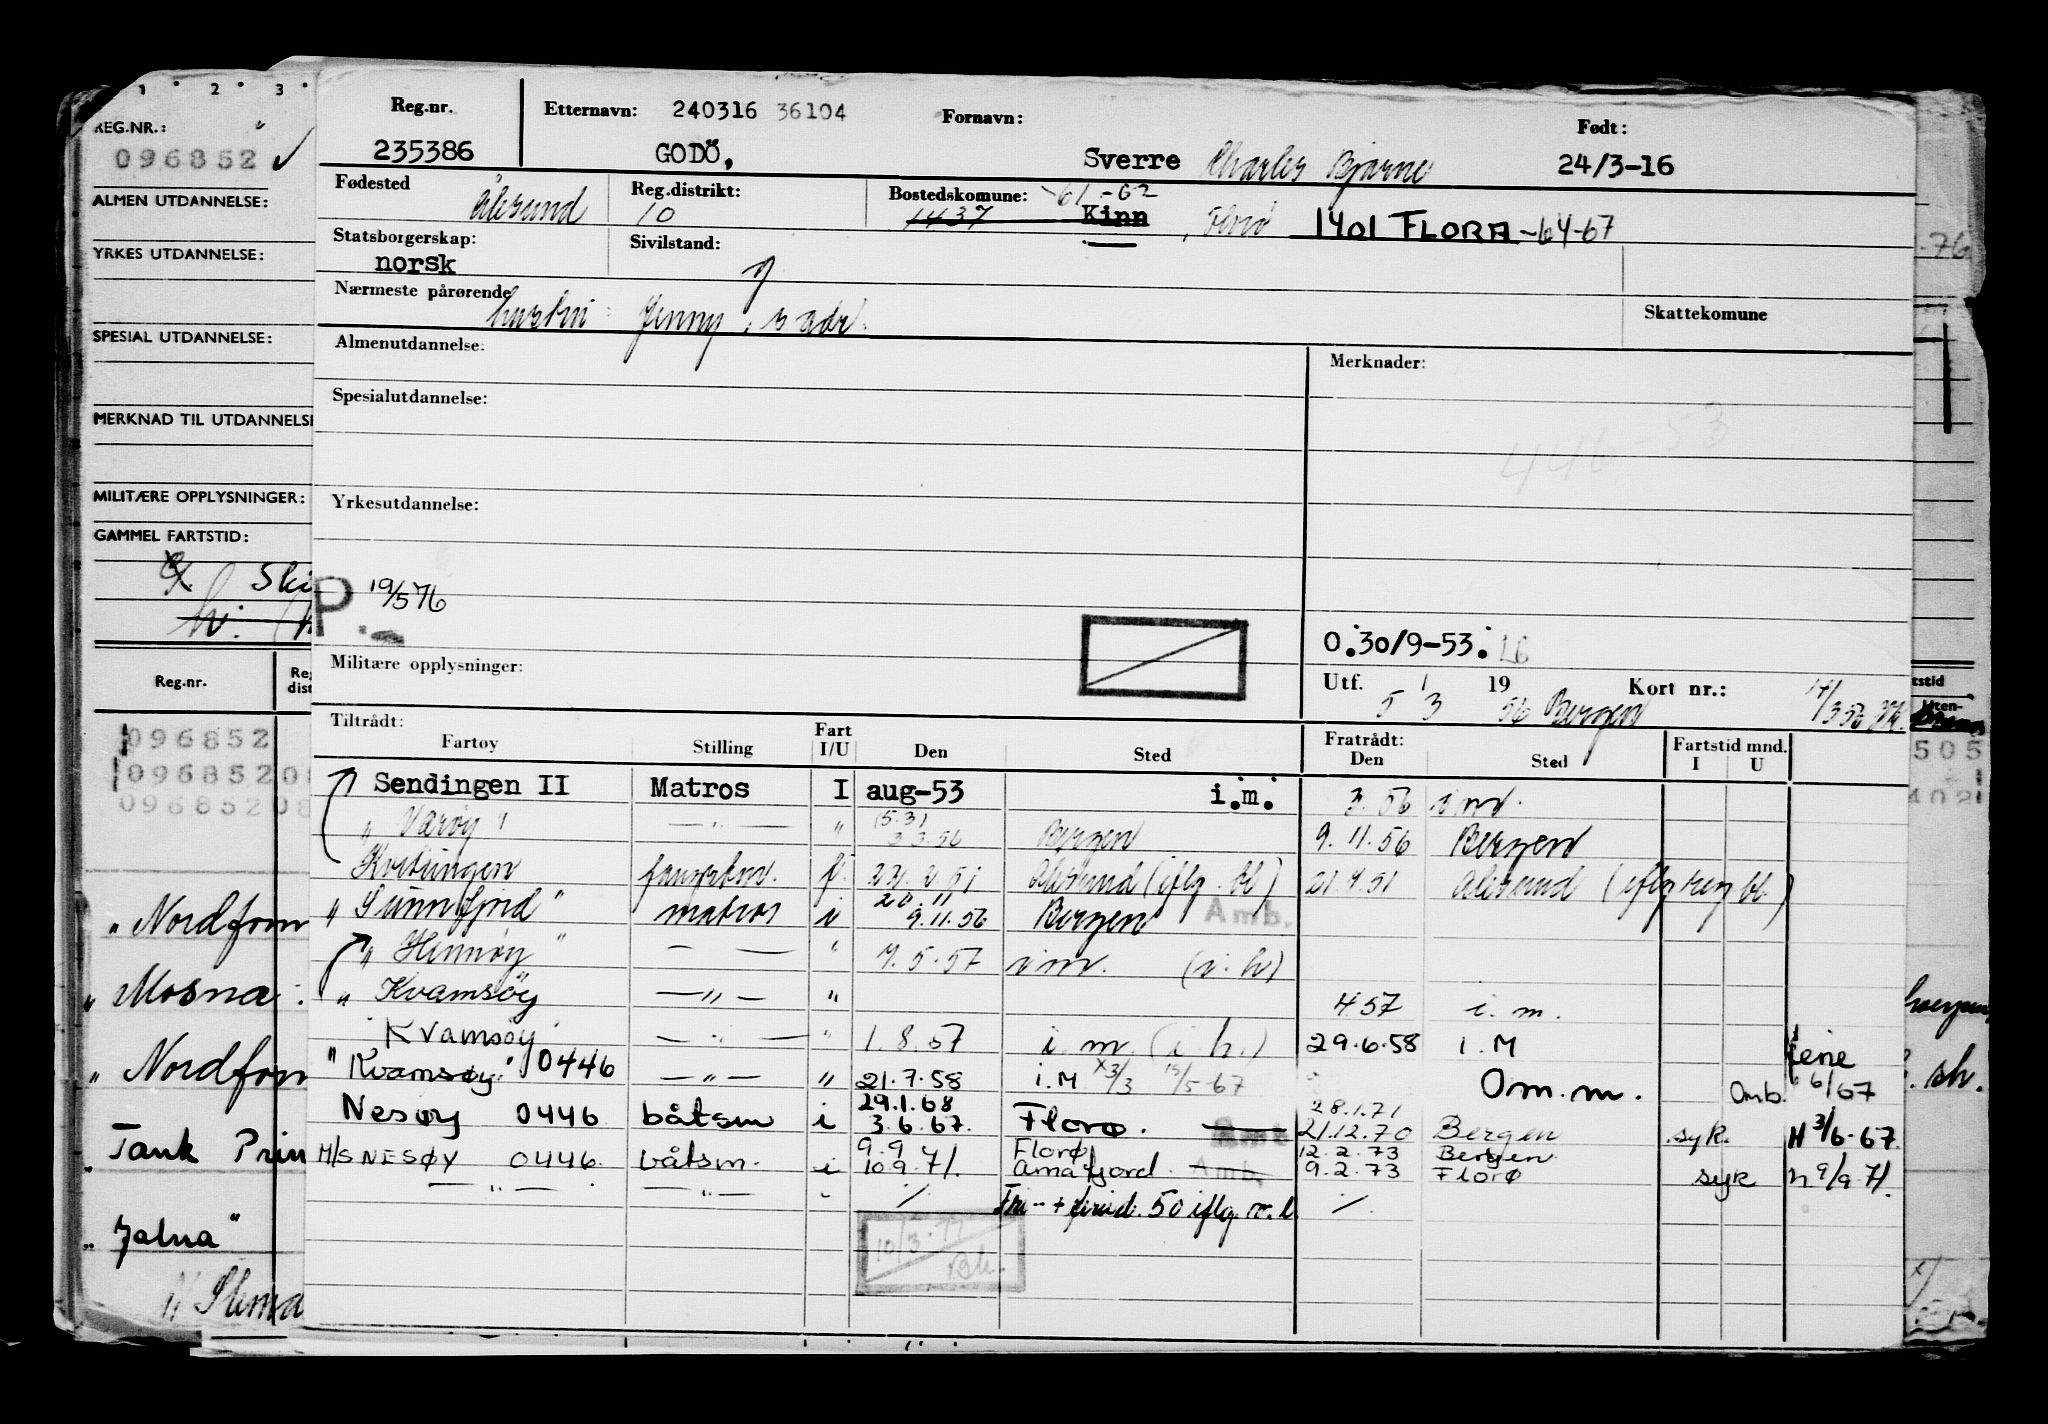 Reg.nr. Etternavn: 240316 36104 Fornavn: Født:
235386 GODÖ, Sverre Charles Bjarne 24/3-16
Fødested Ålesund Reg.distrikt: 10 Bostedskomune: -61-62
1437 Kinn, Florø 1401 FLORA-64-67
Statsborgerskap: norsk Sivilstand: g
Nærmeste pårørende hustru: Jenny, s adr. Skattekomune
Almenutdannelse: Merknader:
Spesialutdannelse:
446-53
Yrkesutdannelse:
P. 19/5 76
O.30/9-53.
Militære opplysninger:
Utf. 5/3 1956 Bergen Kort nr.:
Tiltrådt: Fratrådt:
Fartøy Stilling Fart I/U Den Sted Den Sted Fartstid mnd. I U
Sendingen II Matros I aug-53 i.m. 3.56 i.m.
" Værøy " — " — " (5.3) 3.3.56 Bergen 9.11.56 Bergen
Kvitungen fangstm. f. 22.2 51 Ålesund (iflg. bl) 21.4.51 Ålesund (iflg reg bl.)
" Sunnfjord " matros i 20.11 9.11.56 Bergen Amb.
" Hinnøy " — — " 7.5.57 i m. (i.h)
" Kvamsøy — " — " 4.57 i.m.
" Kvamsøy — " — " 1.8.57 i.m. (i.h.) 29.6.58 I.M
" Kvamsøy " 0446 — " — " 21.7.58 i.M x3/3 15/5-67 Om.m. Omb. ferie 6/67
Nesøy 0446 båtsm i 29.1.68 3.6.67. Florø. Amb 28.1.71 21.12.70 Bergen syk. H 3/6-67.
M/S NESØY 0446. båtsm. i 9.9 10.9.71. Florø Amafjord. Amb. 12.2.73 9.2.73 Bergen. Florø syk n 9/9-71.
— " — — " — " /. Fri- + feried. 50 iflg. m.l. /.
10/3-77
Bk.
1 2 3
REG.NR.:
096852
ALMEN UTDANNELSE:
YRKES UTDANNELSE:
SPESIAL UTDANNELSE:
MERKNAD TIL UTDANNELSE
MILITÆRE OPPLYSNINGER:
GAMMEL FARTSTID:
Reg.nr. Reg dist
096852
09685208
09685208
" Nordfonn
" Mosna"
" Nordfonn
" Tank Prin
" Jalna"
" Stensa
-76
tstid
Uten-
505
402
sh.